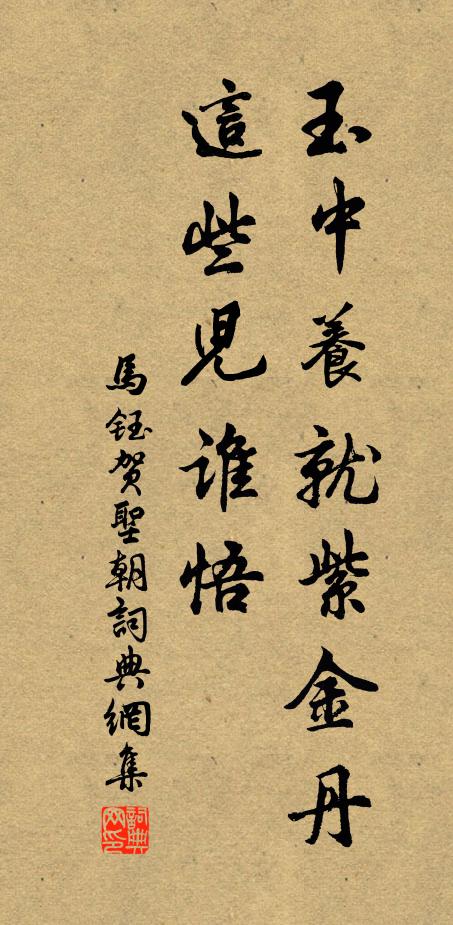 玉中養就紫金丹
這些兒誰悟
馬鈺賀聖朝詞典網集
詞典网印